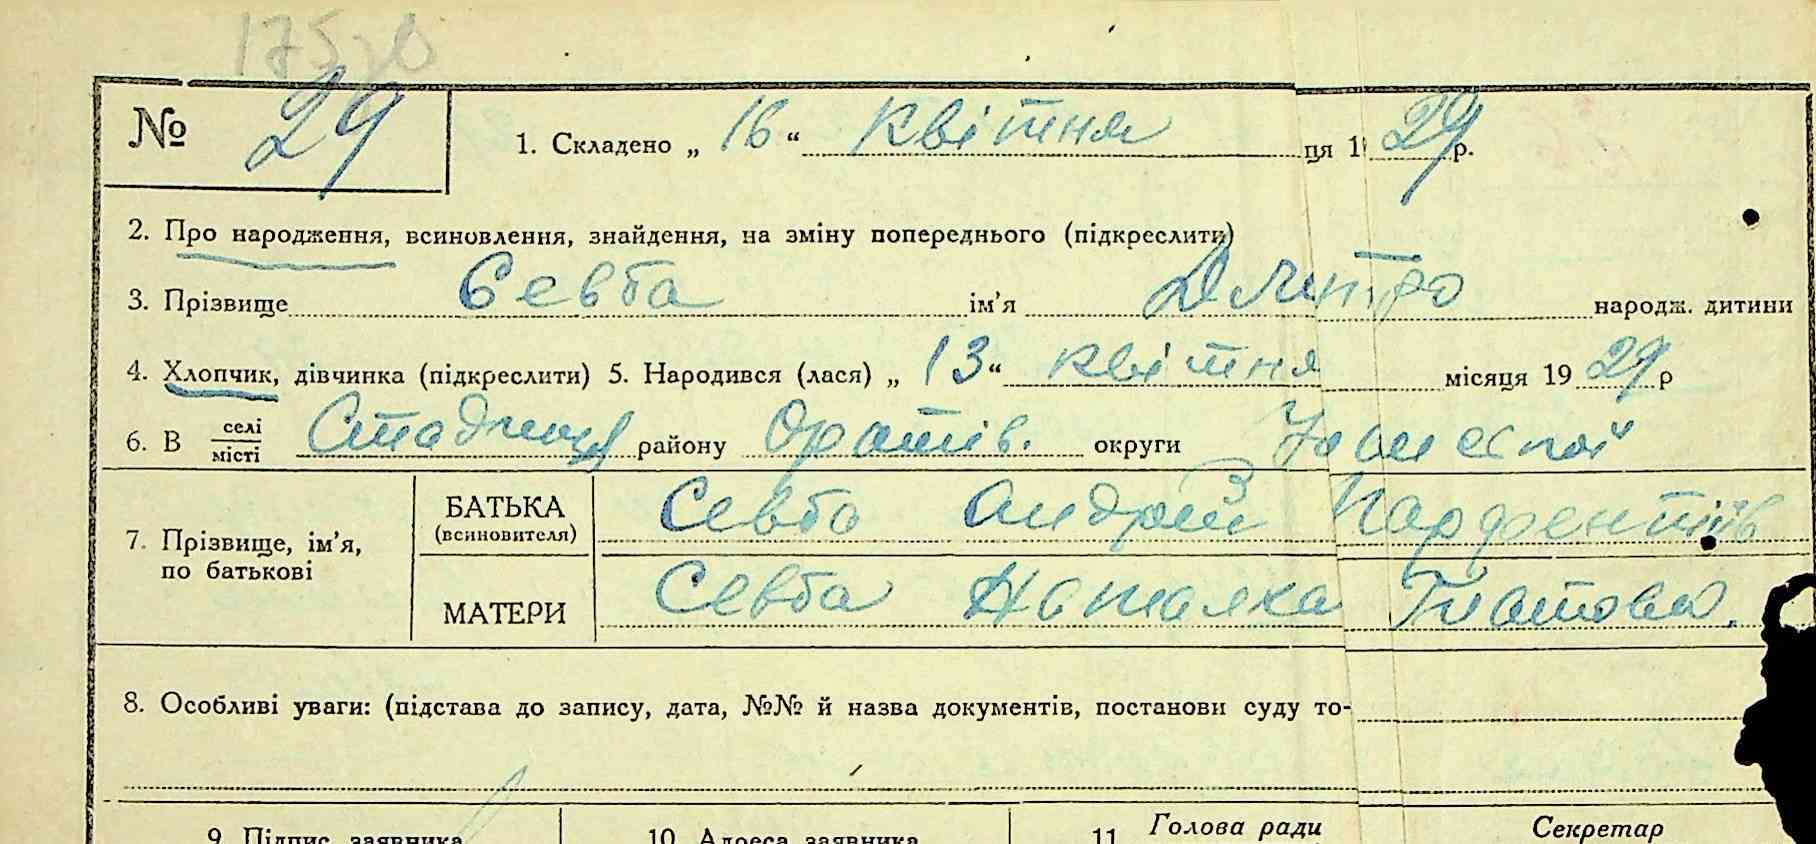 175
№ 29 1. Складено „ 16 “ квітня ця 1 29 р.
2. Про народження, всиновлення, знайдення, на зміну попереднього (підкреслити)
3. Прізвище Севба ім’я Дмитро народж. дитини
4. Хлопчик, дівчинка (підкреслити) 5. Народився (лася) „ 13 “ квітня місяця 19 29 р
6. В селі місті Стадниця району Оратів. округи Уманської
7. Прізвище, ім’я, по батькові
БАТЬКА (всиновителя) Севба Андрій Парфентіїв
МАТЕРИ Севба Наталка
8. Особливі уваги: (підстава до запису, дата, №№ й назва документів, постанови суду то-
9. Підпис заявника 10. Адреса заявника 11. Голова ради Секретар